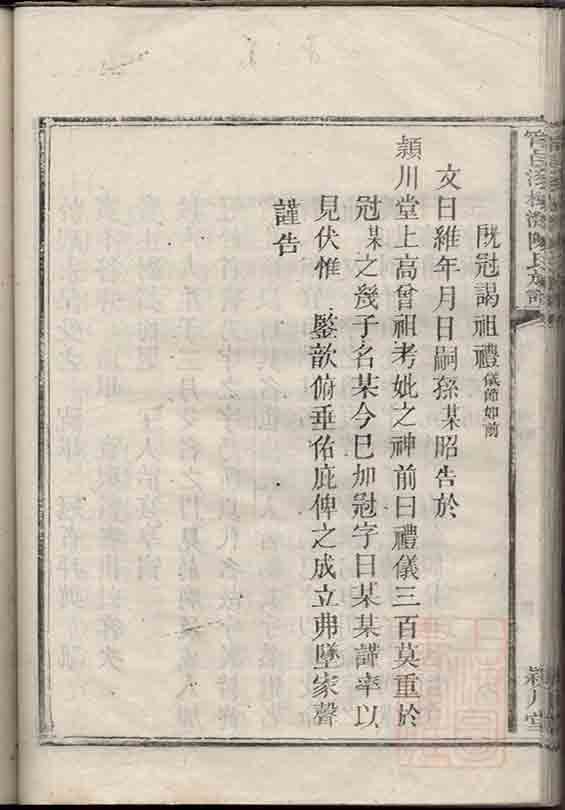 既冠謁祖禮儀節如前
文曰維年月日嗣孫某昭告於
頴川堂上高曾祖考妣之神前曰禮儀三百莫重於
冠某之幾子名某今已加冠字曰某某謹率以
見伏惟 鑒歆俯垂佑庇俾之成立弗墜家聲
謹告
陳氏族譜
頴川堂